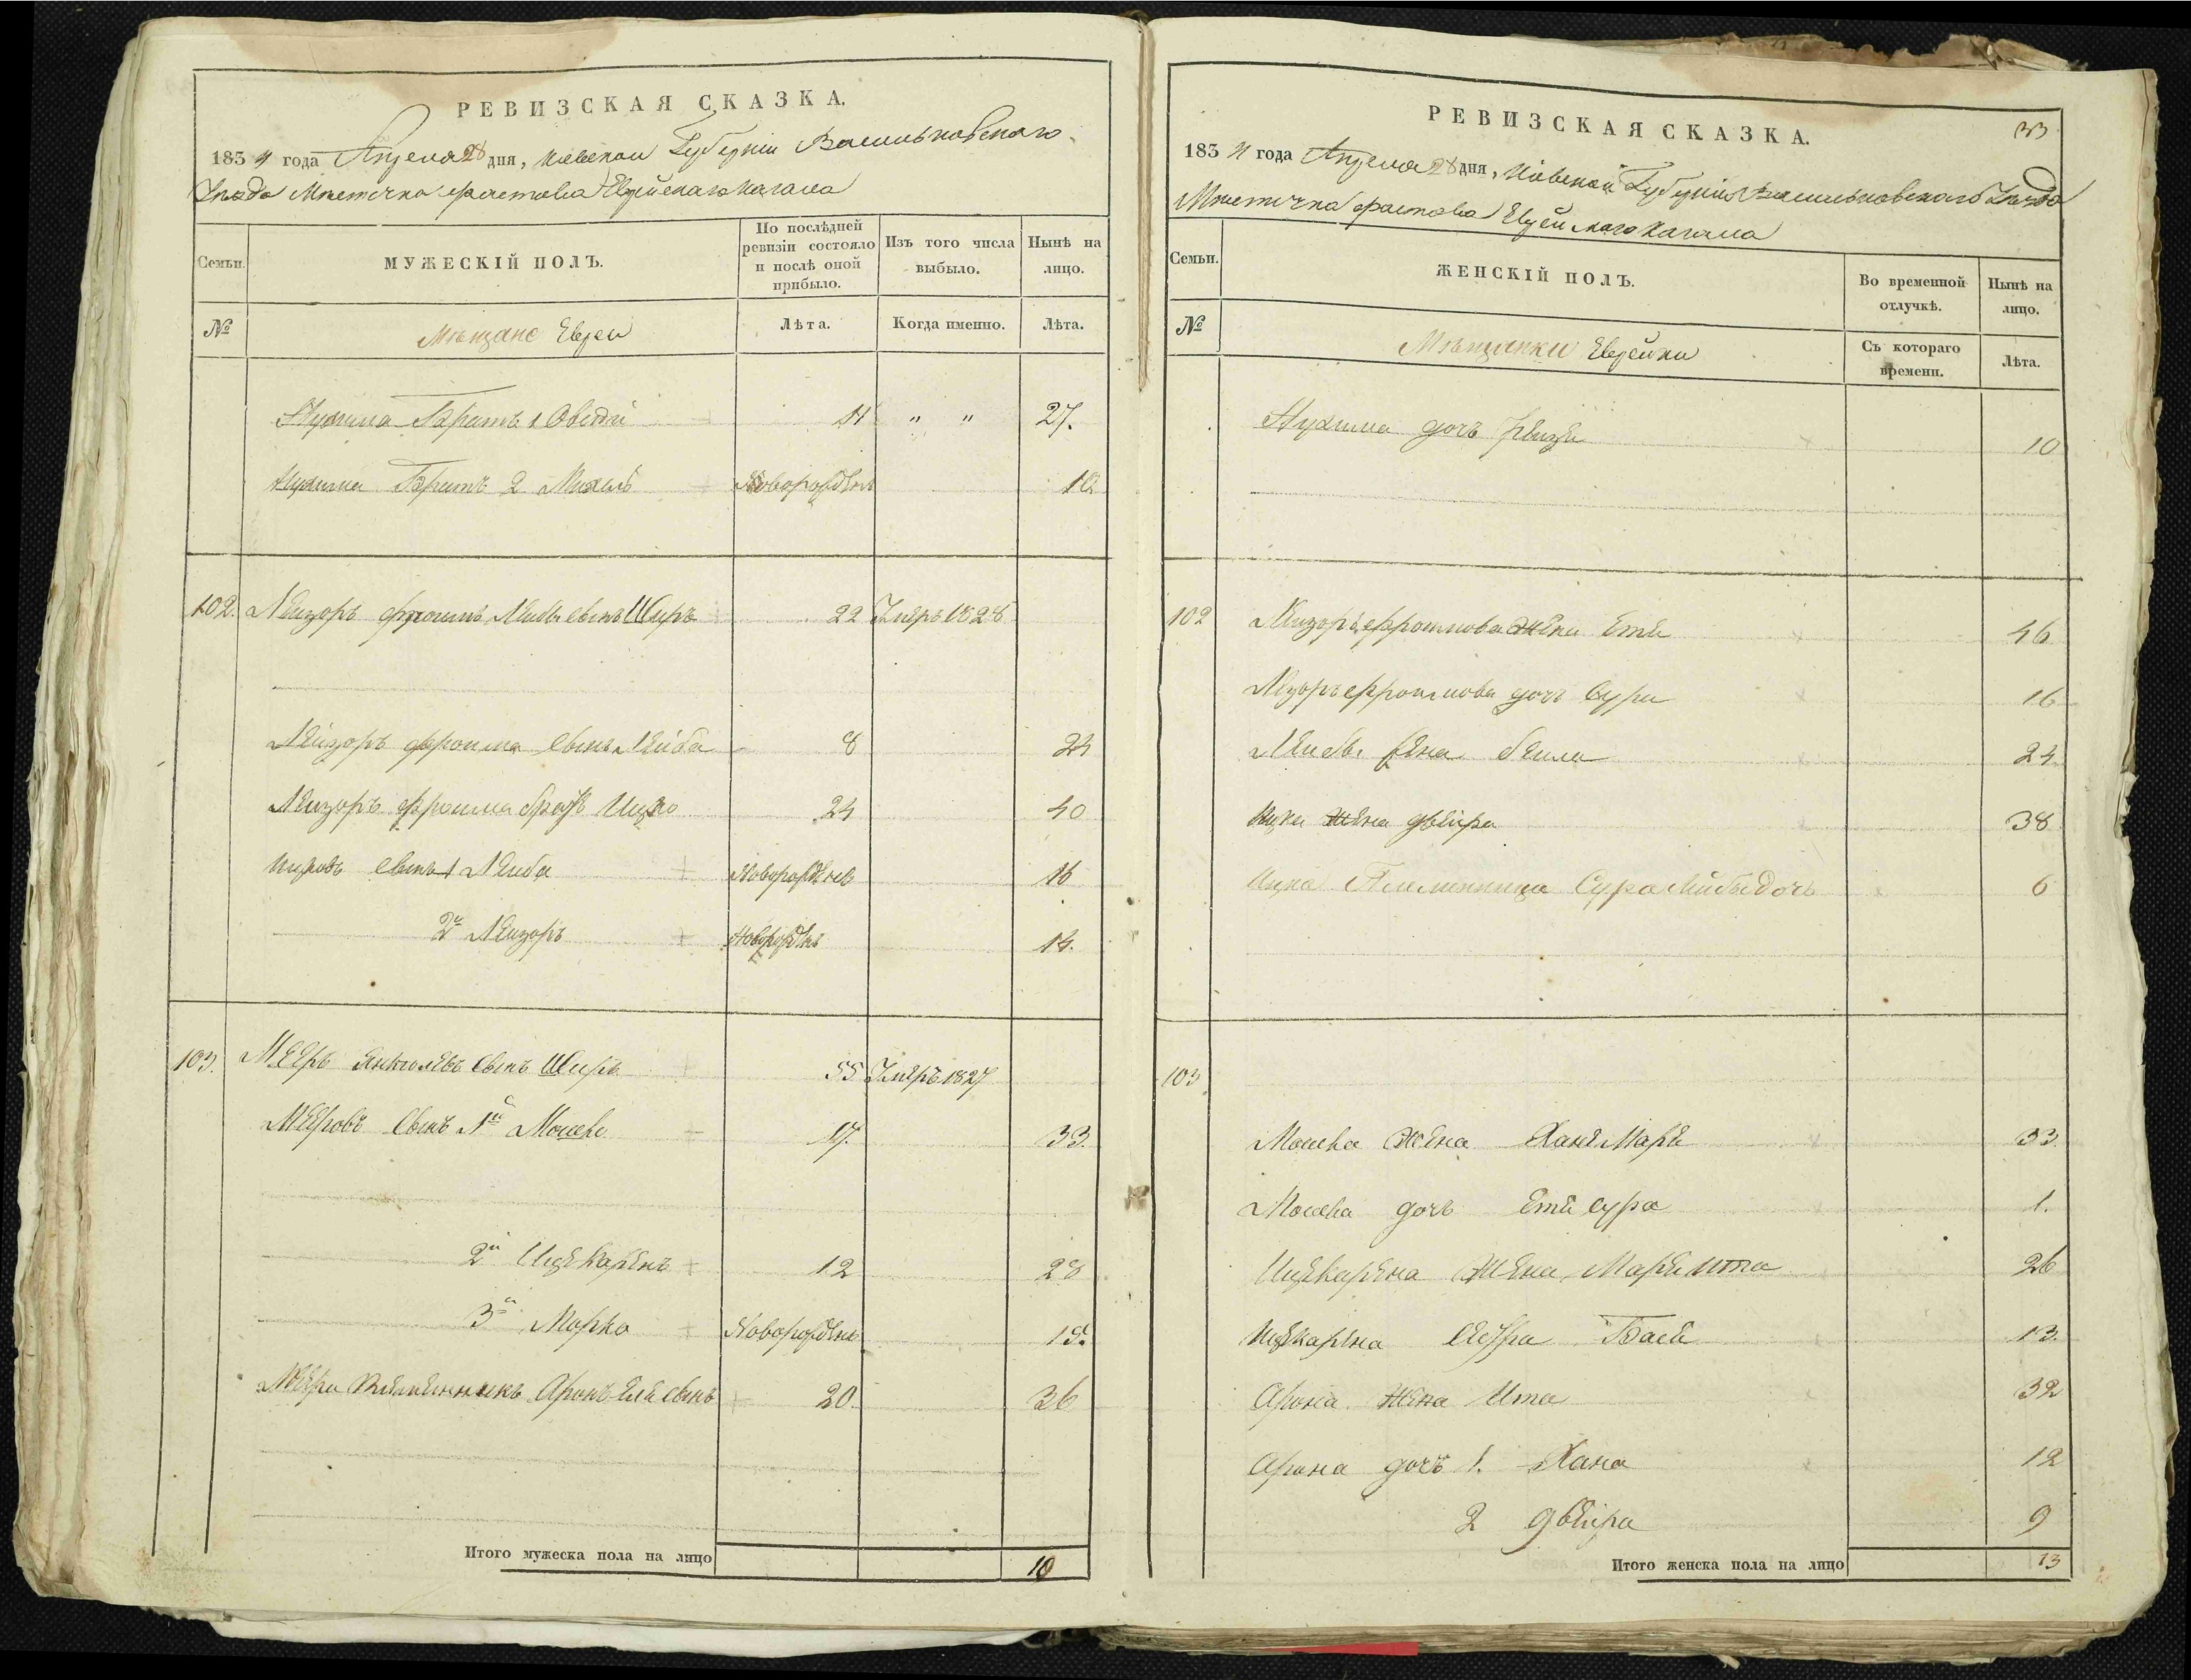 РЕВИЗСКАЯ СКАЗКА.
1834 года Апреля 28 дня, Киевской Губернiи Васильковскаго
Уезда Местечка Фастова Еврейскаго Кагала
Семьи.
МУЖЕСКIЙ ПОЛЪ.
По послѣдней ревизiи состояло и послѣ оной прибыло.
Изъ того числа выбыло.
Нынѣ на лицо.
№
Мѣщане Евреи
Лѣта.
Когда именно.
Лѣта.
Нухима Братъ 1 Овсей 11 " " 27.
Нухима Братъ 2 Михель Новорожденъ 12
102. Лейзоръ Фроимъ Лейбы сынъ Шуръ 22 Умеръ 1828
Лейзоръ Фроима сынъ Лейба 8 24
Лейзоръ Фроима братъ Ицко 24 40
Ицковъ сынъ 1 Лейба Новорожденъ 16
2й Лейзоръ Новорожденъ 14.
103. Мееръ Янкелевъ сынъ Ширъ 55 Умеръ 1827
Мееровъ сынъ 1й Мошко 17. 33.
2й 12 28
3й Морко Новорожденъ 15.
Меера племенникъ Аронъ Елй сынъ 20. 36
Итого мужеска пола на лицо 10
РЕВИЗСКАЯ СКАЗКА.
33
1834 года Апреля 28 дня, Кiевской Губернiи Васильковскаго Уезда
Местечка Фастова Еврейскаго Кагала
Семьи.
ЖЕНСКIЙ ПОЛЪ.
Во временной отлучкѣ.
Нынѣ на лицо.
№
Мѣщанки Еврейки
Съ котораго времени.
Лѣта.
Нухима дочь Рейзя 10
102 Лейзоръ Фроимова жена Етя 46
Лезоръ Фроимова дочь Сура 16
Лейбы жена Бейла 24
Ицка жена Двейра 38
Ицка Племянница Сура Лейбы дочь 6
103
Мошка жена Хане Маре 33.
Мошка дочь Етя Сура 1.
жена Маре Ита 26
Бася 13.
Арона жена Ита 32
Арона дочь 1. Хана 12
2 Двейра 9
Итого женска пола на лицо 13